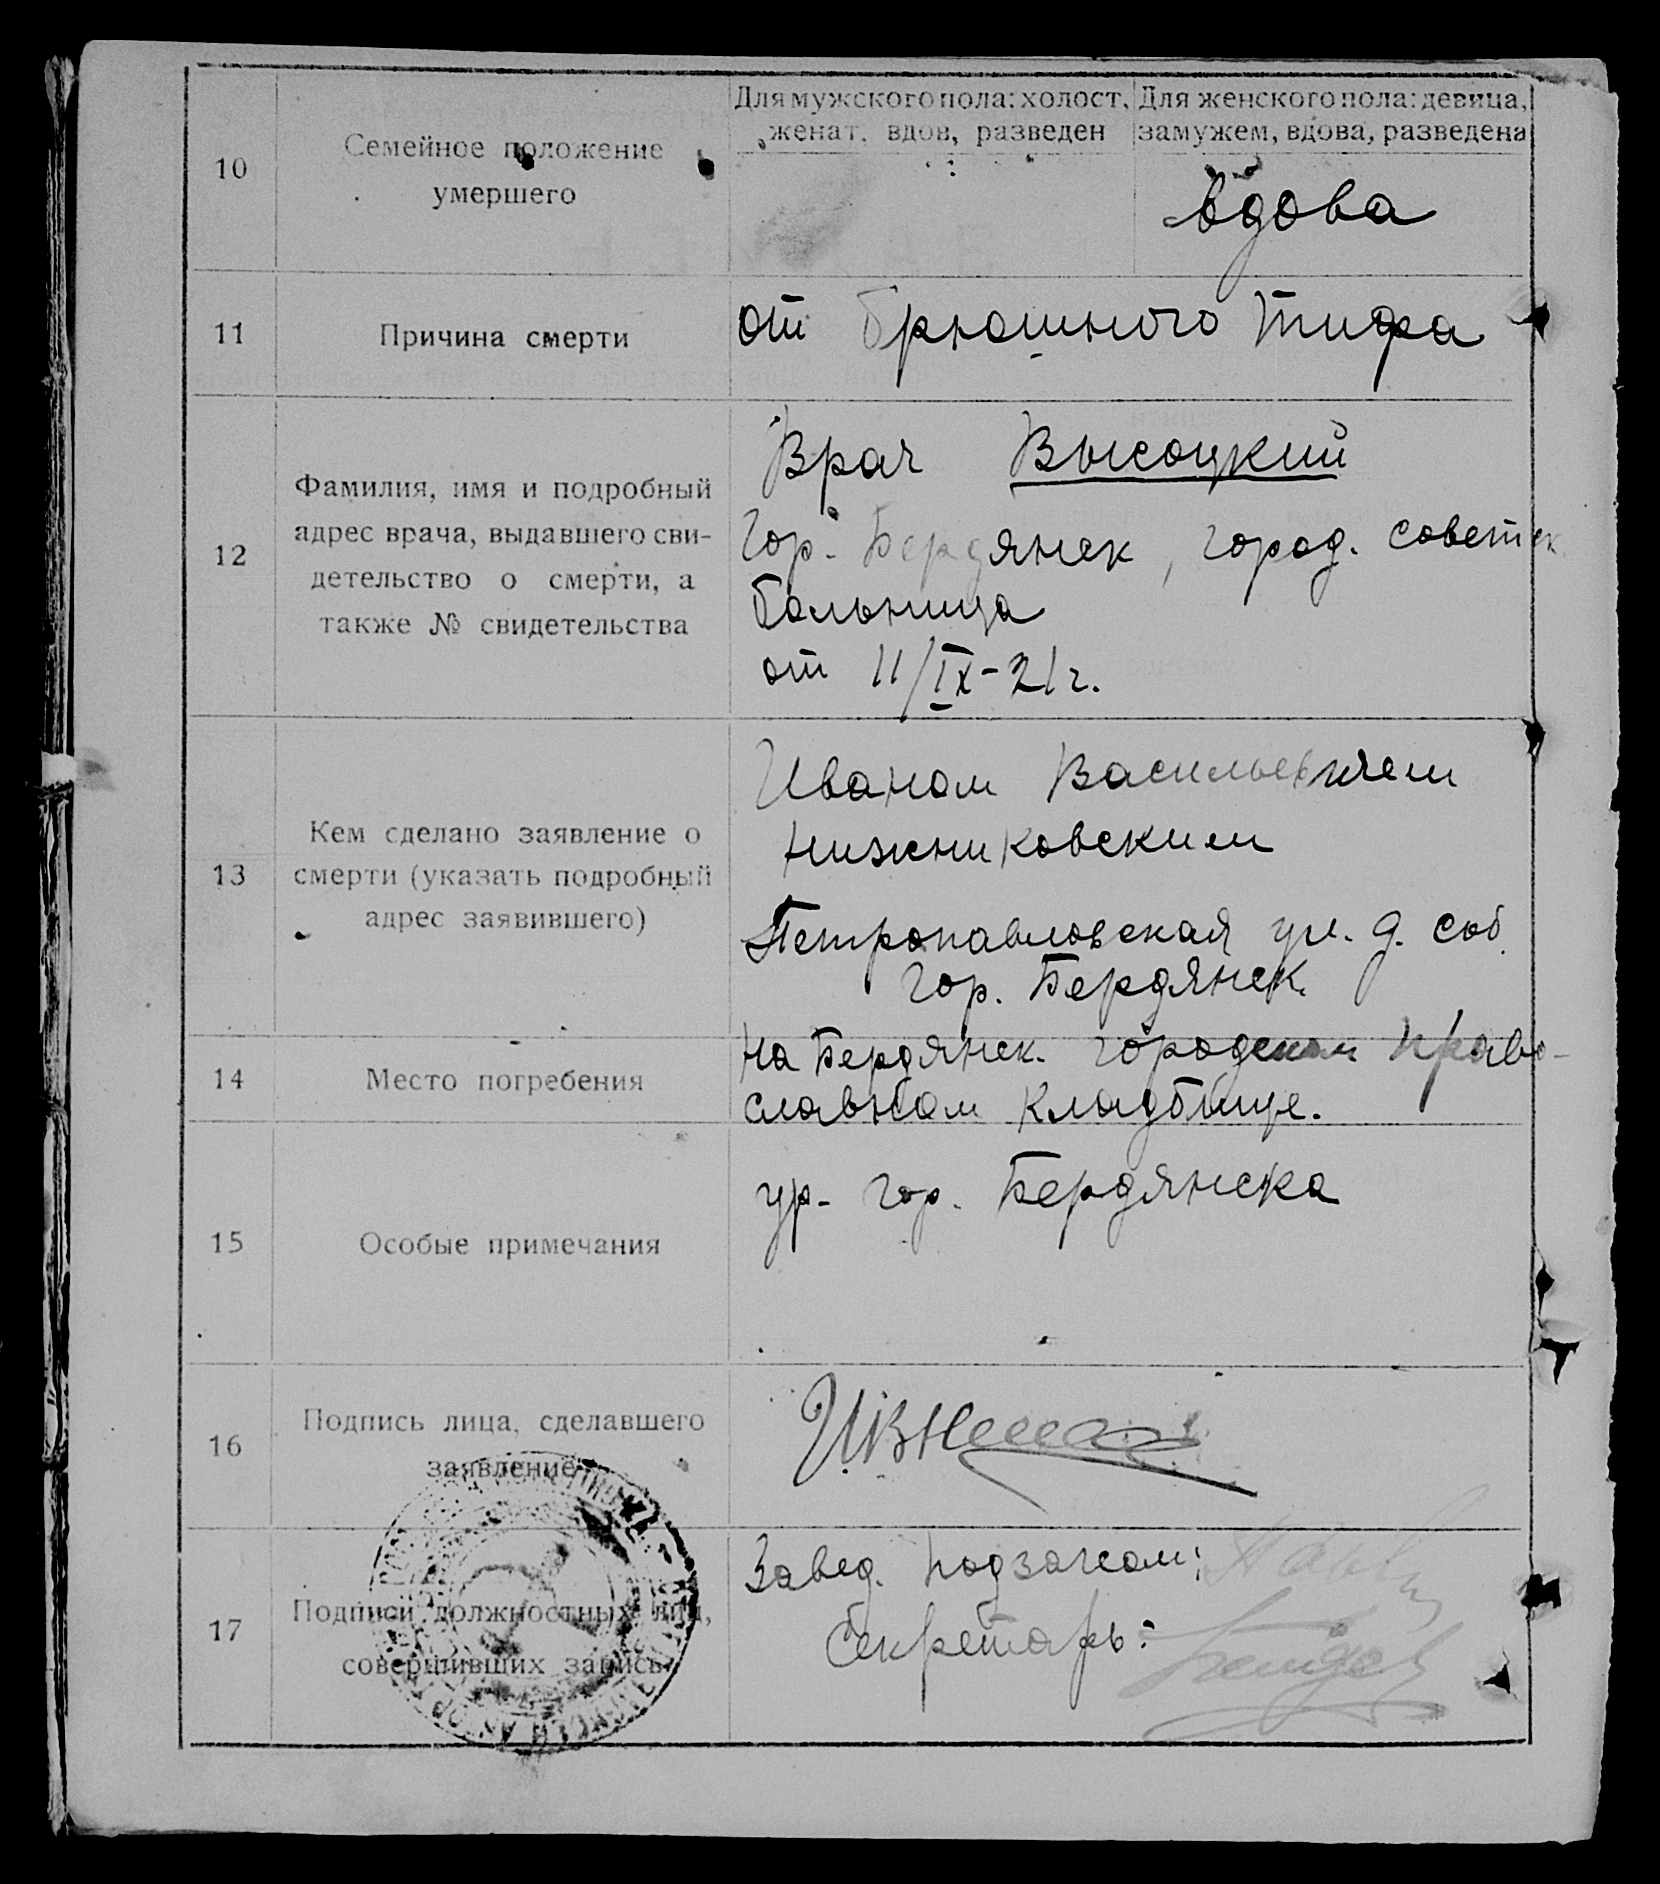 10
Семейное положение
умершего
Для мужского пола: холост,
женат, вдов, разведен
Для женского пола: девица,
замужем, вдова, разведена
вдова
11
Причина смерти
от брюшного тифа
12
Фамилия, имя и подробный
адрес врача, выдавшего сви-
детельство о смерти, а
также № свидетельства
Врач Высоцкий
Гор. Бердянск, город. советск.
больница
от 11/IX-21г.
13
Кем сделано заявление о
смерти (указать подробный
адрес заявившего)
Иваном Васильевичем
Нижниковским
Петропавловская ул. д. соб.
гор. Бердянск.
14
Место погребения
на Бердянск. городском право-
славном кладбище.
15
Особые примечания
ур. гор. Бердянска
16
Подпись лица, сделавшего
заявление
17
Подписи должностных лиц,
совершивших запись
Завед. подзагсом:
Секретарь: